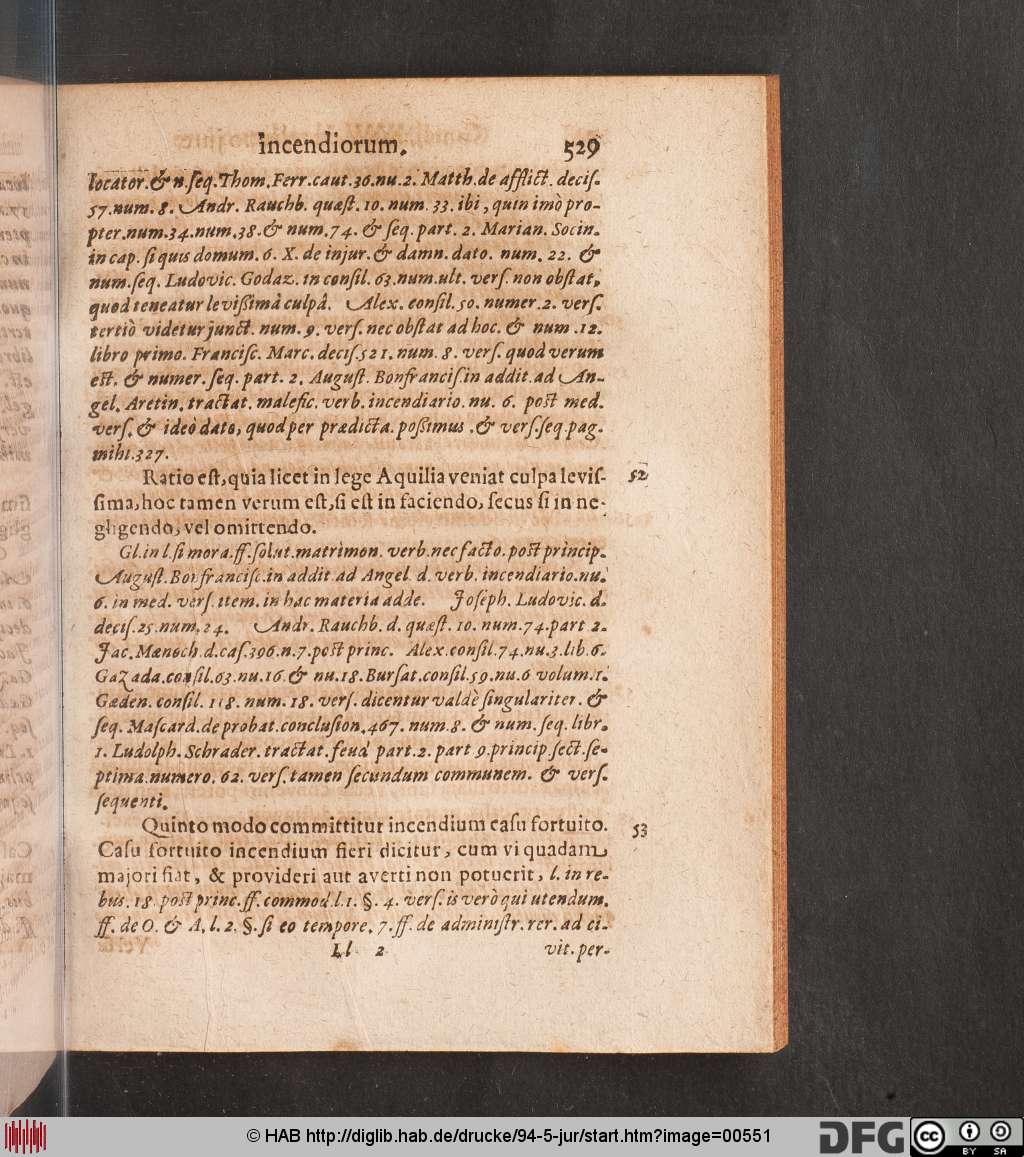 Incendiorum. 529
locator. & n. seq. Thom. Ferr. caut. 36. nu. 2. Matth. de afflict. decis.
57. num. 8. Andr. Rauchb. quæst. 10. num. 33. ibi, quin imò pro-
pter. num. 34. num. 38. & num. 74. & seq. part. 2. Marian. Socin.
in cap. si quis domum. 6. X. de injur. & damn. dato. num. 22. &
num. seq. Ludovic. Godaz. in consil. 63. num. ult. vers. non obstat,
quod teneatur levißimâ culpâ. Alex. consil. 50. numer. 2. vers.
tertiò videtur junct. num. 9. vers. nec obstat ad hoc. & num. 12.
libro primo. Francisc. Marc. decis. 521. num. 8. vers. quod verum
est. & numer. seq. part. 2. August. Bonfrancis. in addit. ad An-
gel. Aretin. tractat. malefic. verb. incendiario. nu. 6. post med.
vers. & ideò dato, quod per prædicta. poßimus. & vers. seq. pag.
mihi. 327.
Ratio est, quia licet in lege Aquilia veniat culpa levis- 52
sima, hoc tamen verum est, si est in faciendo, secus si in ne-
gligendo, vel omittendo.
Gl. in l. si mora. ff. solut. matrimon. verb. nec facto. post princip.
August. Bonfrancisc. in addit. ad Angel. d. verb. incendiario. nu.
6. in med. vers. item. in hac materia adde. Joseph. Ludovic. d.
decis. 25. num. 24. Andr. Rauchb. d. quæst. 10. num. 74. part 2.
Jac. Mænoch. d. cas. 396. n. 7. post princ. Alex. consil. 74. nu. 3. lib. 6.
Gazada. consil. 63. nu. 16. & nu. 18. Bursat. consil. 59. nu. 6 volum. 1.
Gæden. consil. 118. num. 18. vers. dicentur valdè singulariter. &
seq. Mascard. de probat. conclusion. 467. num. 8. & num. seq. libr.
1. Ludolph. Schrader. tractat. feud. part. 2. part 9. princip. sect. se-
ptima. numero. 62. vers. tamen secundum communem. & vers.
sequenti.
Quinto modo committitur incendium casu fortuito. 53
Casu fortuito incendium fieri dicitur, cum vi quadam
majori fiat, & provideri aut averti non potuerit, l. in re-
bus. 18. post princ. ff. commod. l. 1. §. 4. vers. is verò qui utendum.
ff. de O. & A. l. 2. §. si eo tempore. 7. ff. de administr. rer. ad ci-
Ll 2 vit. per-
© HAB http://diglib.hab.de/drucke/94-5-jur/start.htm?image=00551
DFG
cc BY SA